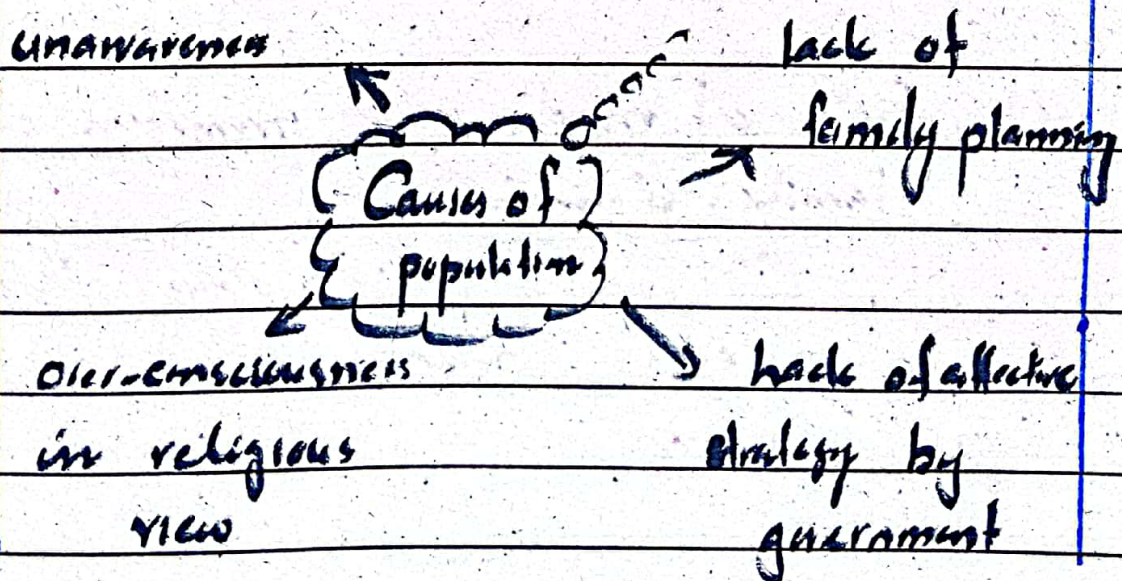 unawareness
lack of
family planning
Causes of
population
over-consciousness
in religious
view
Lack of effective
strategy by
government